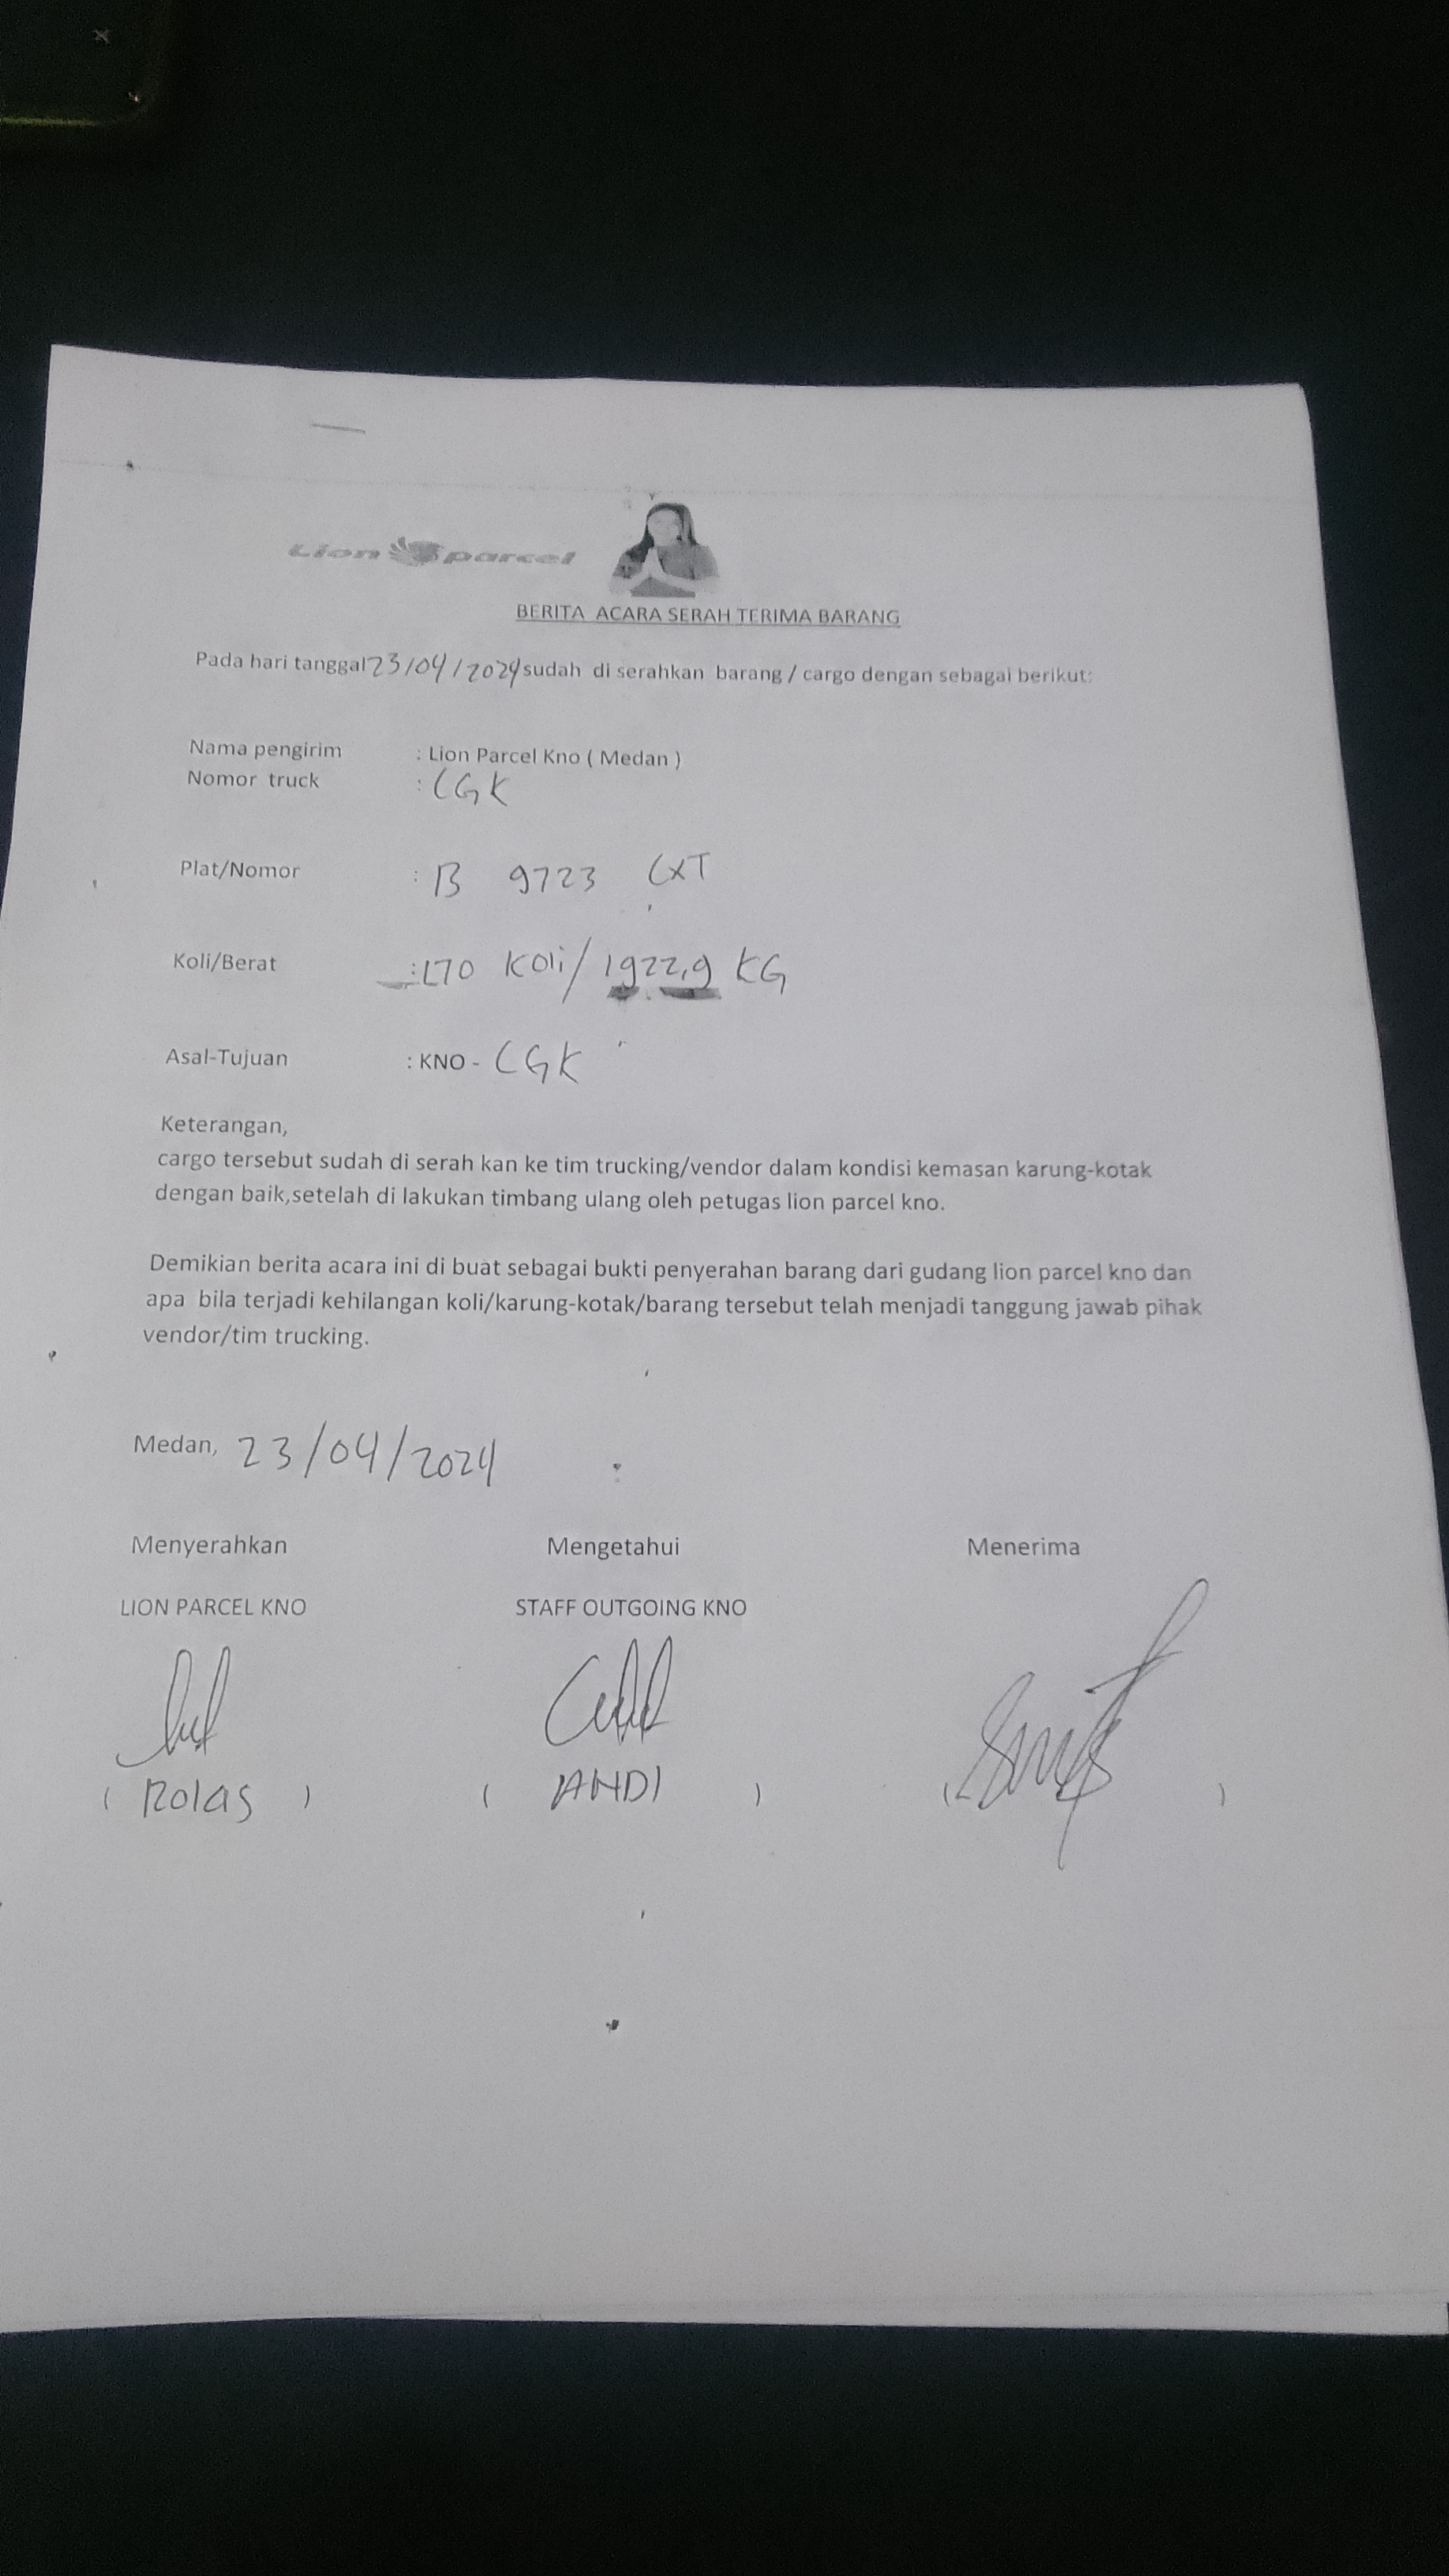 Lion parcel
BERITA ACARA SERAH TERIMA BARANG
Pada hari tanggal 23/04/2024 sudah di serahkan barang / cargo dengan sebagai berikut:
Nama pengirim : Lion Parcel Kno ( Medan )
Nomor truck : CGK
Plat/Nomor : B 9723 CXT
Koli/Berat : 170 Koli/ 1922,9 KG
Asal-Tujuan : KNO - CGK
Keterangan,
cargo tersebut sudah di serah kan ke tim trucking/vendor dalam kondisi kemasan karung-kotak
dengan baik,setelah di lakukan timbang ulang oleh petugas lion parcel kno.
Demikian berita acara ini di buat sebagai bukti penyerahan barang dari gudang lion parcel kno dan
apa bila terjadi kehilangan koli/karung-kotak/barang tersebut telah menjadi tanggung jawab pihak
vendor/tim trucking.
Medan, 23/04/2024
Menyerahkan Mengetahui Menerima
LION PARCEL KNO STAFF OUTGOING KNO
( Rolas ) ( ANDI ) ( )